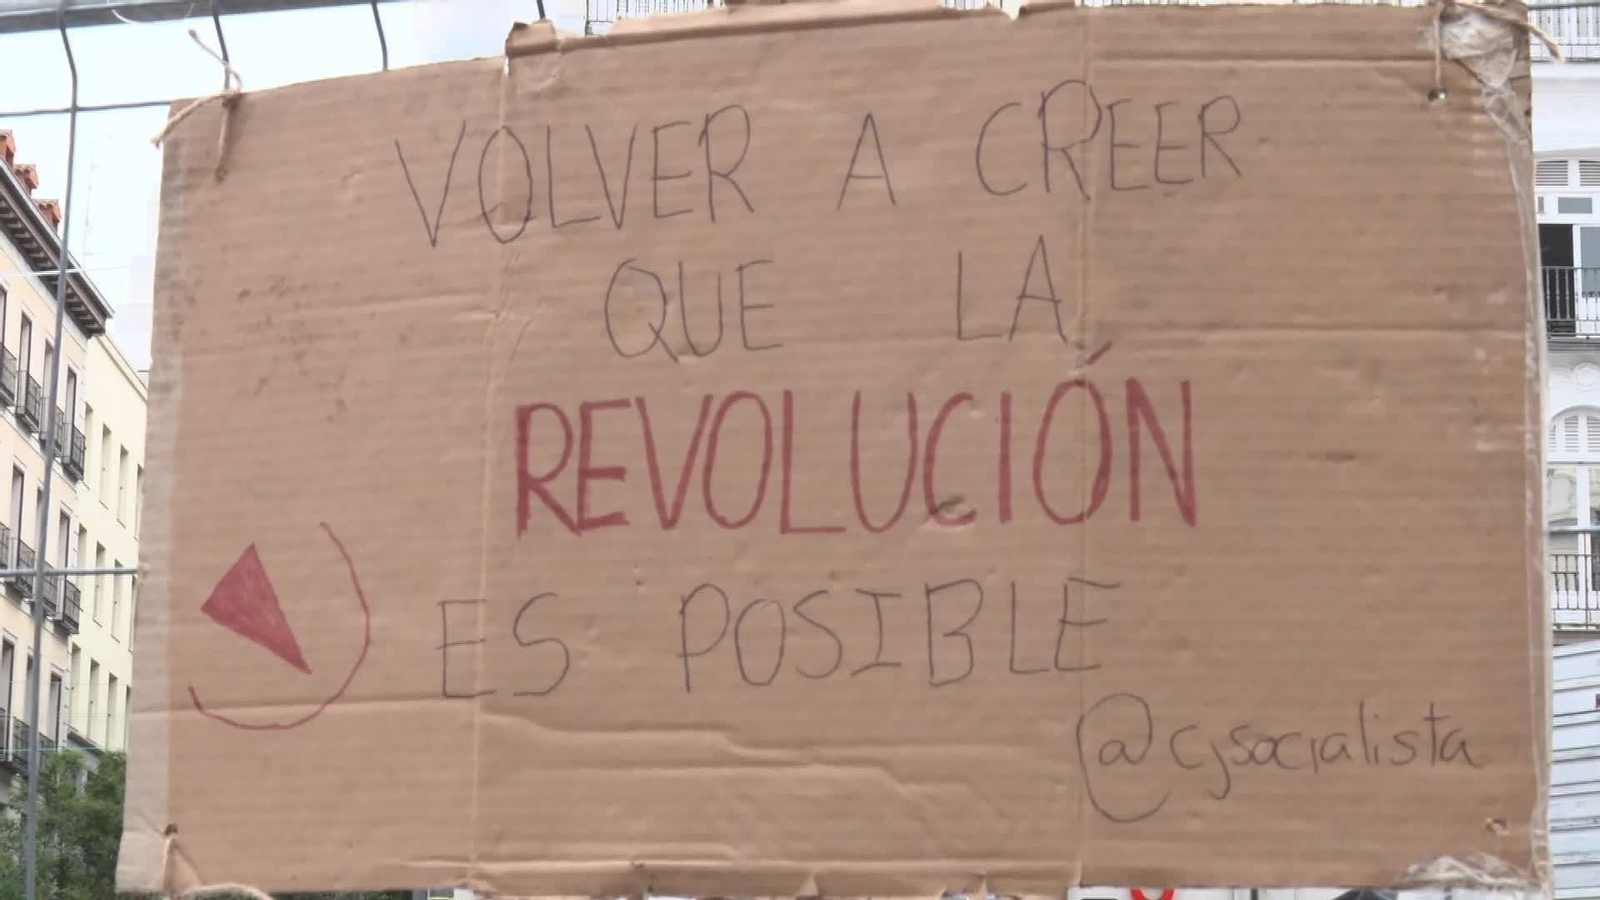 VOLVER A CREER
QUE LA
REVOLUCIÓN
ES POSIBLE
@cjsocialista